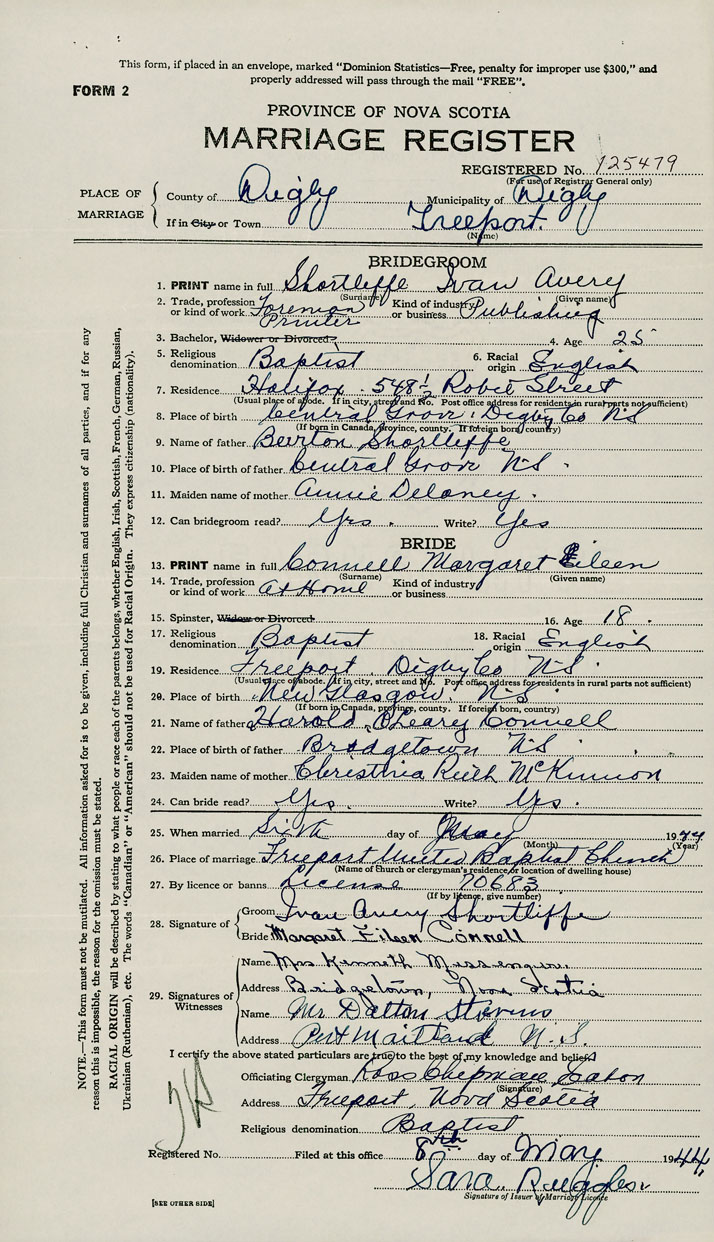 This form, if placed in an envelope, marked "Dominion Statistics—Free, penalty for improper use $300," and
properly addressed will pass through the mail "FREE".
FORM 2
PROVINCE OF NOVA SCOTIA
MARRIAGE REGISTER
REGISTERED No. 125479
(For use of Registrar General only)
PLACE OF MARRIAGE
County of Digby Municipality of Digby
If in City or Town Freeport.
(Name)
BRIDEGROOM
1. PRINT name in full Shortliffe Ivan Avery
(Surname) (Given name)
2. Trade, profession or kind of work Foreman Printer Kind of industry or business Publishing
3. Bachelor, Widower or Divorced? 4. Age 25
5. Religious denomination Baptist 6. Racial origin English
7. Residence Halifax . 548½ Robie Street
(Usual place of abode. If in city, street and No. Post office address for residents in rural parts not sufficient)
8. Place of birth Central Grove, Digby Co NS
(If born in Canada, province, county. If foreign born, country)
9. Name of father Burton Shortliffe
10. Place of birth of father Central Grove NS.
11. Maiden name of mother Annie Delaney.
12. Can bridegroom read? Yes. Write? Yes
BRIDE
13. PRINT name in full Connell Margaret Eileen
(Surname) (Given name)
14. Trade, profession or kind of work at Home Kind of industry or business
15. Spinster, Widow or Divorced 16. Age 18.
17. Religious denomination Baptist 18. Racial origin English
19. Residence Freeport, Digby Co NS
(Usual place of abode. If in city, street and No. Post office address for residents in rural parts not sufficient)
20. Place of birth New Glasgow. N.S.
(If born in Canada, province, county. If foreign born, country)
21. Name of father Harold O'Leary Connell
22. Place of birth of father Bridgetown NS
23. Maiden name of mother Ruth McKinnon
24. Can bride read? Yes. Write? Yes.
25. When married Sixth day of May 1944
(Month) (Year)
26. Place of marriage Freeport United Baptist Church
(Name of Church or clergyman's residence, or location of dwelling house)
27. By licence or banns License 70683
(If by licence, give number)
28. Signature of
Groom Ivan Avery Shortliffe
Bride Margaret Eileen Connell
29. Signatures of Witnesses
Name Mrs Kenneth Messenger
Address Bridgetown, Nova Scotia
Name Mr Dalton Stevens
Address Port Maitland N.S.
I certify the above stated particulars are true to the best of my knowledge and belief.
Officiating Clergyman Ross Chipman Eaton
(Signature)
Address Freeport, Nova Scotia
Religious denomination Baptist
Registered No. Filed at this office 8th day of May 1944
Sara Ruggles
Signature of Issuer of Marriage Licence
[SEE OTHER SIDE]
NOTE.—This form must not be mutilated. All information asked for is to be given, including full Christian and surnames of all parties, and if for any
reason this is impossible, the reason for the omission must be stated.
RACIAL ORIGIN will be described by stating to what people or race each of the parents belongs, whether English, Irish, Scottish, French, German, Russian,
Ukrainian (Ruthenian), etc. The words "Canadian" or "American" should not be used for Racial Origin. They express citizenship (nationality).